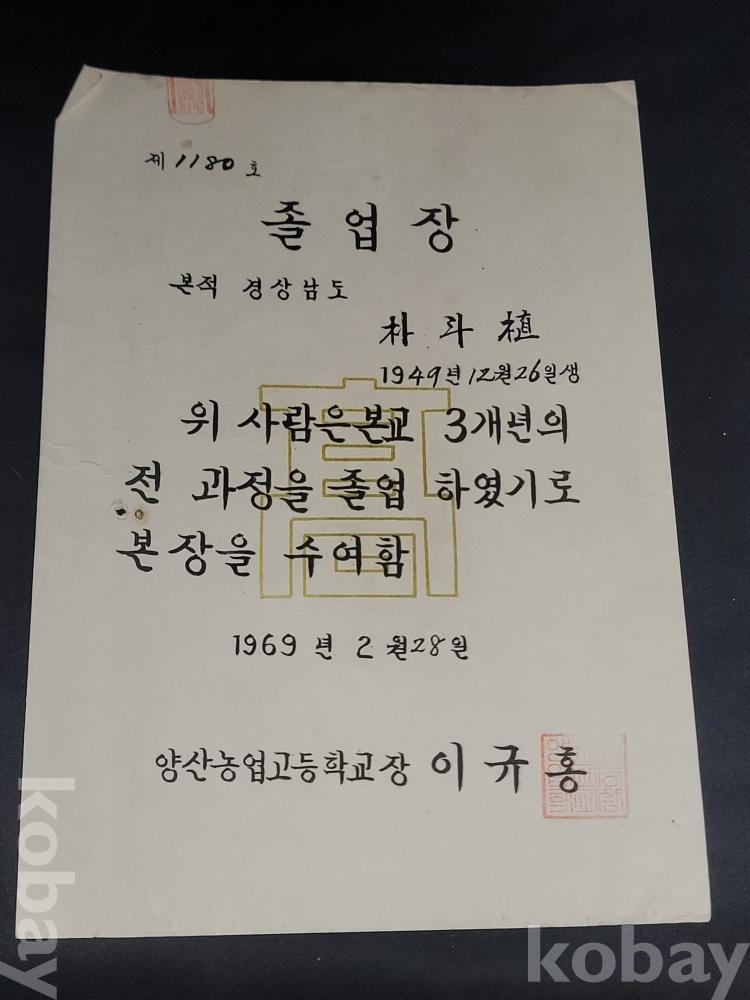 제 1180 호
졸업장
본적 경상남도
朴 斗 植
1949년 12월 26일생
위 사람은 본교 3개년의
전 과정을 졸업 하였기로
본장을 수여함
1969 년 2 월 28 일
양산농업고등학교장 이규홍
kobay
kobay